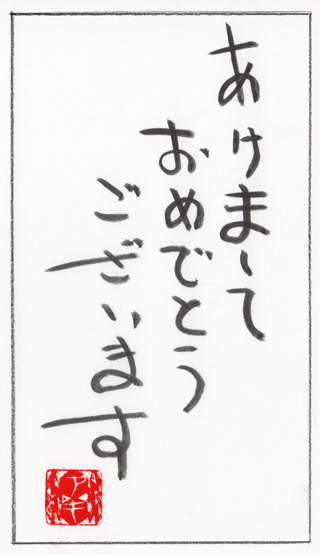 あけまして
おめでとう
ございます
アキ